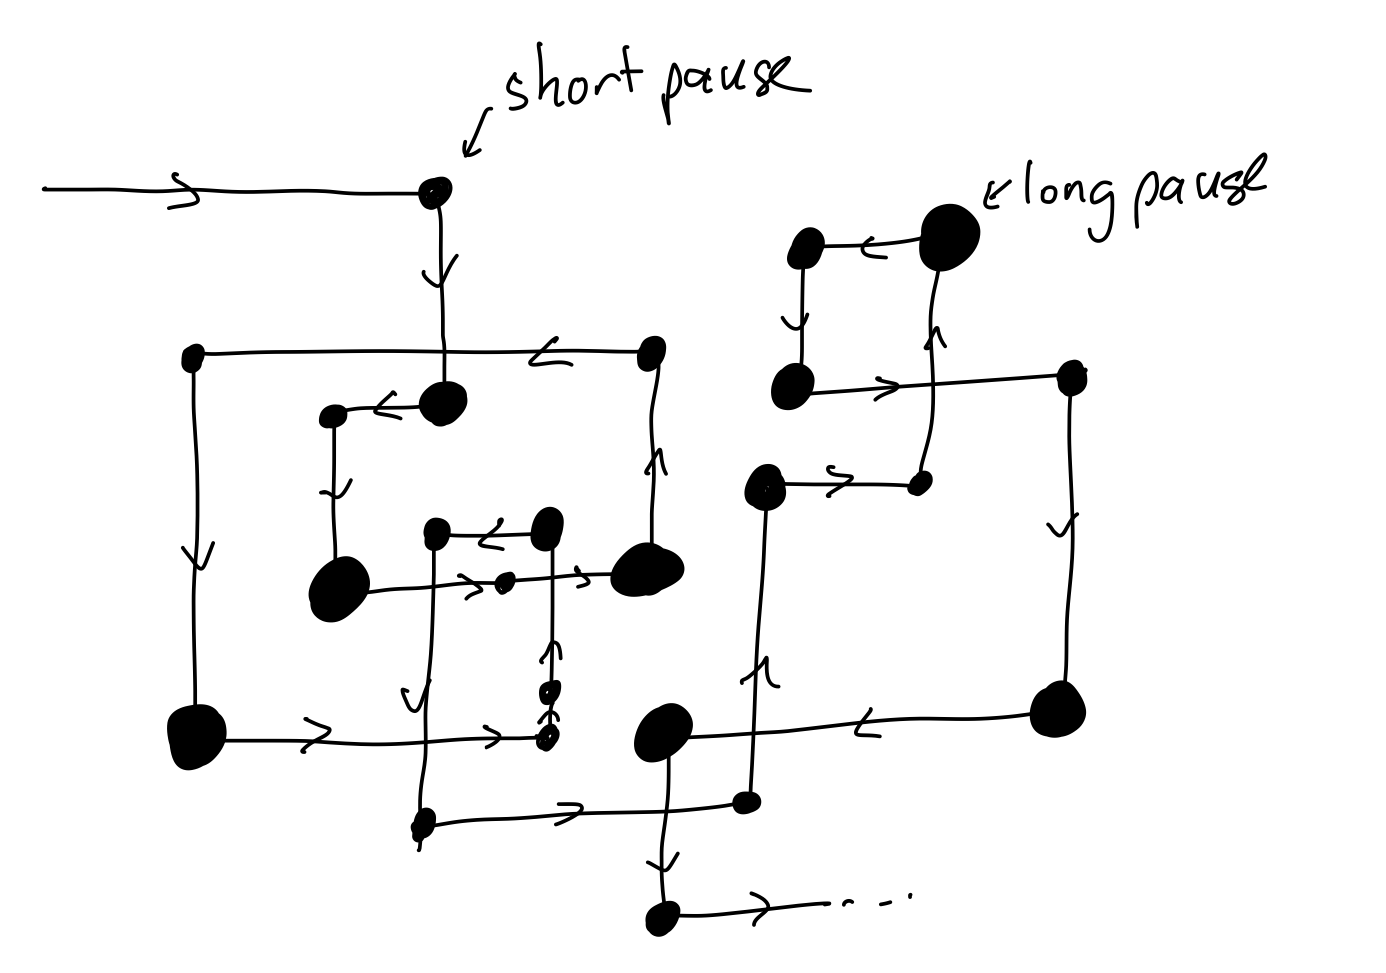 short pause
long pause